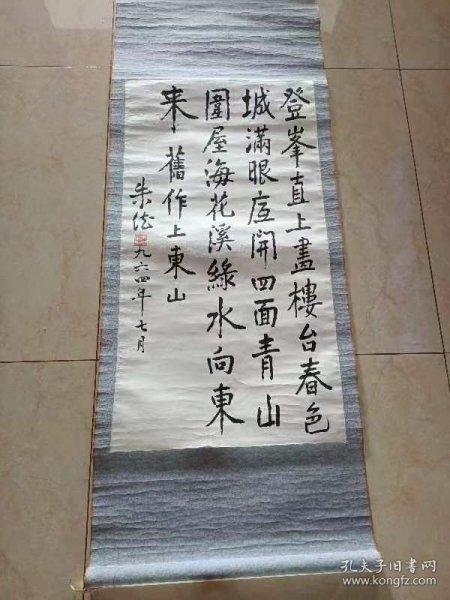 登峯直上盡樓台春色
城滿眼底開四面青山
圍屋海花溪綠水向東
来 舊作上東山
朱德 九六四年七月
孔夫子旧书网
www.kongfz.com